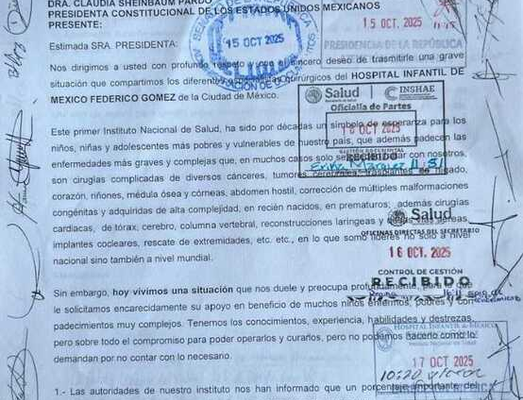 DRA. CLAUDIA SHEINBAUM PARDO
PRESIDENTA CONSTITUCIONAL DE LOS ESTADOS UNIDOS MEXICANOS
PRESENTE:
15 OCT 2025
15 OCT 2025
PRESIDENCIA DE LA REPÚBLICA
Estimada SRA. PRESIDENTA:
Nos dirigimos a usted con profundo respeto y con el sincero deseo de trasmitirle una grave
situación que compartimos los diferentes quirúrgicos del HOSPITAL INFANTIL DE
MEXICO FEDERICO GOMEZ de la Ciudad de México.
Salud
INSHAE
Oficialía de Partes
16 OCT 2025
RECIBIDO
Este primer Instituto Nacional de Salud, ha sido por décadas un símbolo de esperanza para los
niños, niñas y adolescentes más pobres y vulnerables de nuestro país, que además padecen las
enfermedades más graves y complejas que, en muchos casos solo se con nosotros,
son cirugías complicadas de diversos cánceres, tumores de hígado,
corazón, riñones, médula ósea y córneas, abdomen hostil, corrección de múltiples malformaciones
congénitas y adquiridas de alta complejidad, en recién nacidos, en prematuros, además cirugías
cardiacas, de tórax, cerebro, columna vertebral, reconstrucciones laríngeas y aéreas
implantes cocleares, rescate de extremidades, etc. etc., en lo que somos líderes no solo a nivel
nacional sino también a nivel mundial.
Salud
OFICINAS DIRECTAS DEL SECRETARIO
16 OCT. 2025
CONTROL DE GESTIÓN
RECIBIDO
Sin embargo, hoy vivimos una situación que nos duele y preocupa profundamente,
le solicitamos encarecidamente su apoyo en beneficio de muchos niños enfermos, pobres y con
padecimientos muy complejos. Tenemos los conocimientos, experiencia, habilidades y destrezas,
pero sobre todo el compromiso para poder operarlos y curarlos, pero no podemos hacerlo como lo
demandan por no contar con lo necesario.
HOSPITAL INFANTIL DE MÉXICO
17 OCT 2025
10:20
1.- Las autoridades de nuestro instituto nos han informado que un porcentaje importante del